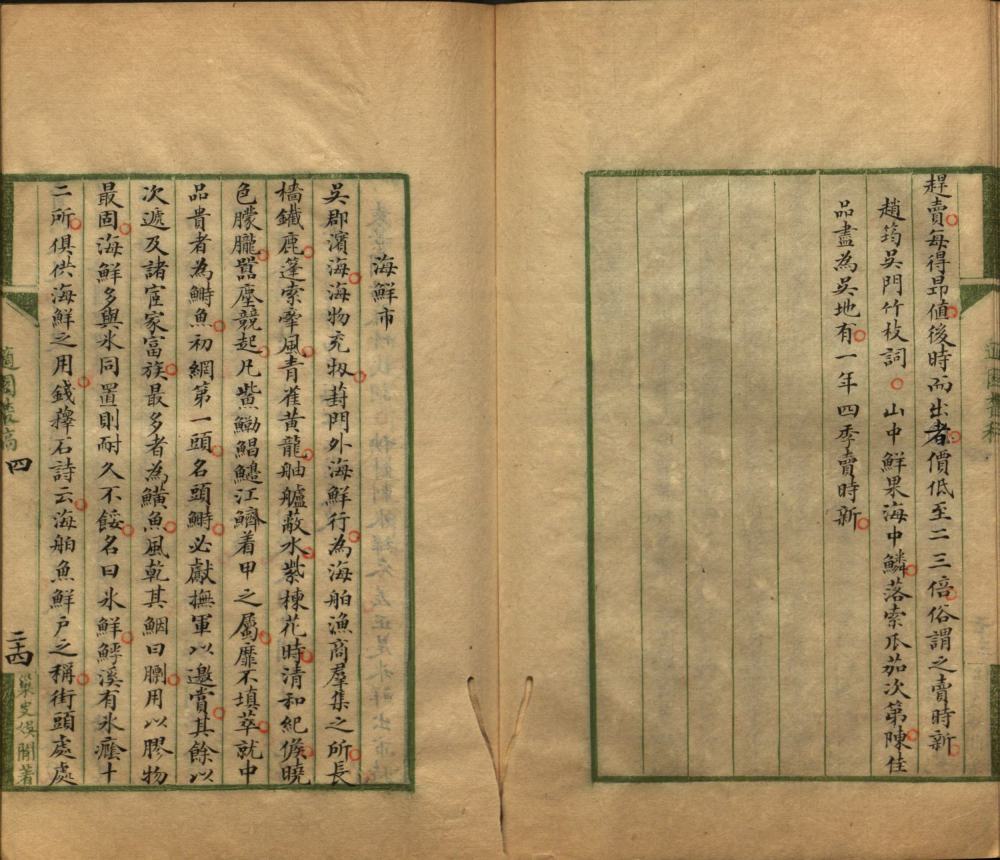 趕賣每得昂值後時而出者價低至二三倍俗謂之賣時新
趙筠吳門竹枝詞山中鮮果海中鱗落索瓜茄次第陳佳
品盡為吳地有一年四季賣時新
海鮮市
吳郡濱海海物充牣葑門外海鮮行為海舶漁商羣集之所長
檣鐵鹿篷索牽風青雀黃龍舳艫蔽水紫楝花時清和紀候曉
色朦朧嚚塵競起凡鮆鱐鯧鱁江鱭着甲之屬靡不填萃就中
品貴者為鰣魚初網第一頭名頭鰣必獻撫軍以邀賞其餘以
次遞及諸宦家富族最多者為鱑魚風乾其鮰曰膕用以膠物
最固海鮮多與氷同置則耐久不餒名曰氷鮮鮃溪有氷窪十
二所俱供海鮮之用錢籜石詩云海舶魚鮮戶之稱街頭處處
適園叢稿
四
二十四
巢叟娛閒著